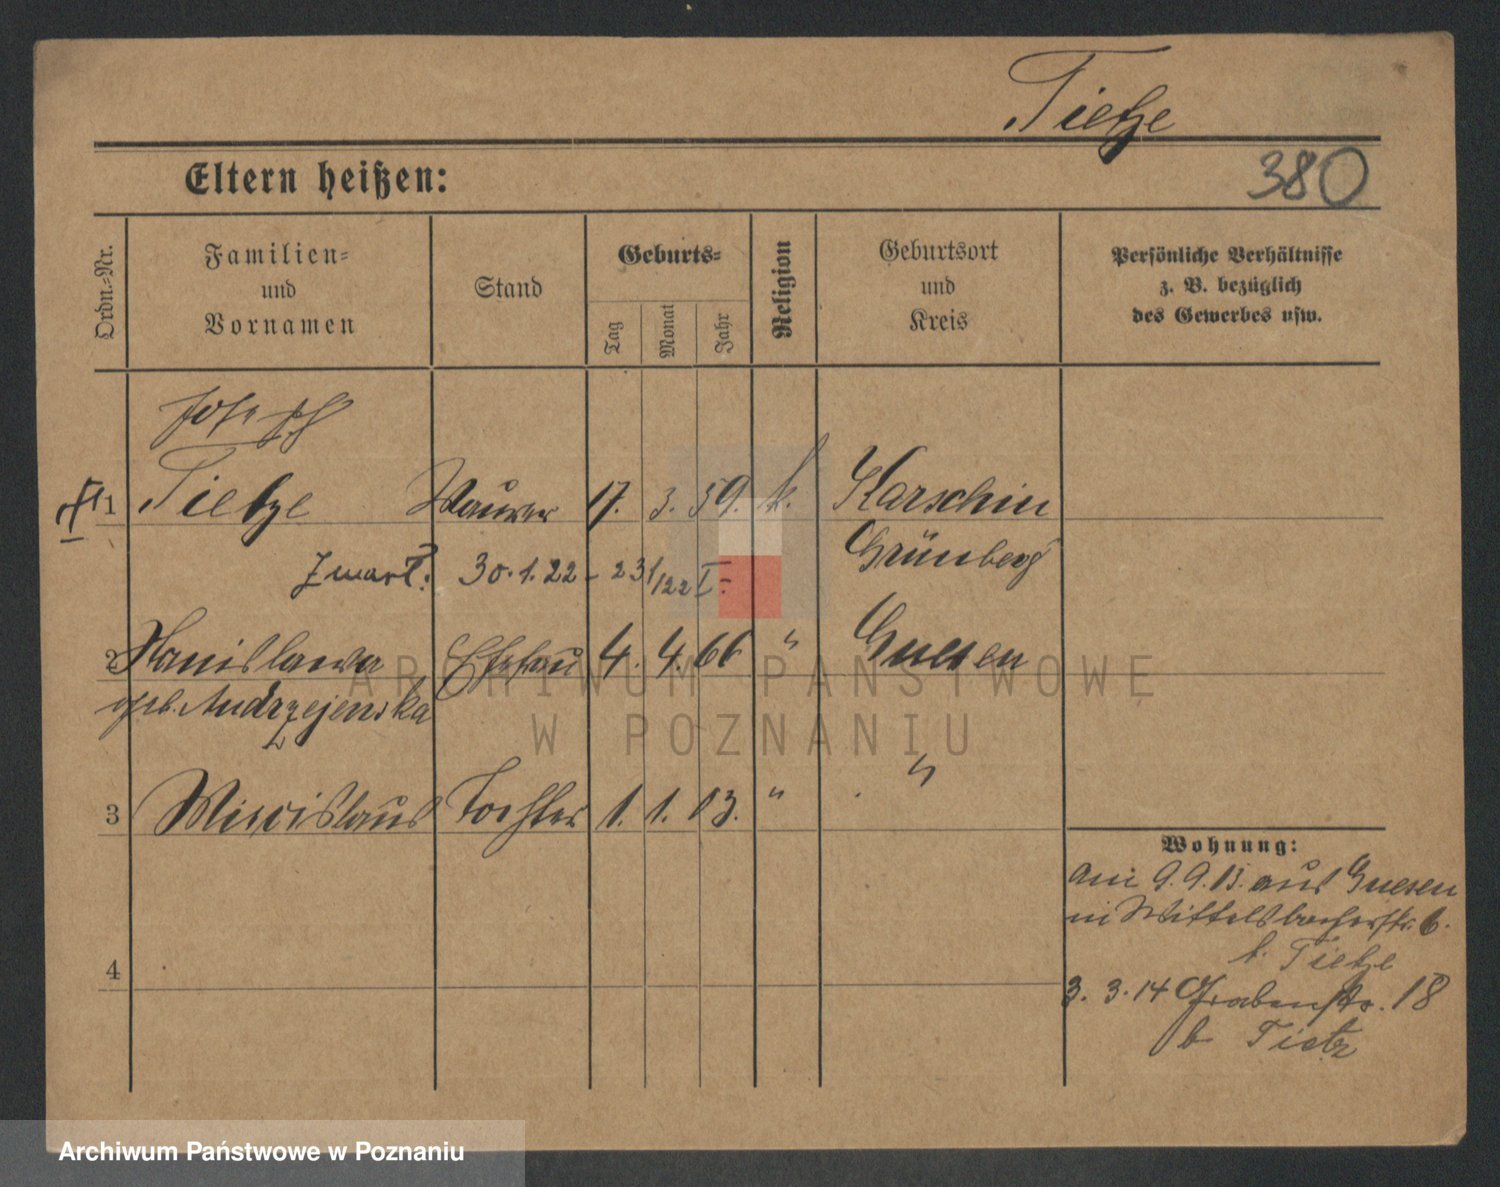 Tietze
Eltern heißen:
380
Ordn.-Nr.
Familien-
und
Vornamen
Stand
Geburts-
Tag
Monat
Jahr
Religion
Geburtsort
und
Kreis
Persönliche Verhältnisse
z. B. bezüglich
des Gewerbes usw.
Joseph
1 Tietze Maurer 17. 3. 59. k. Karschin
Grünberg
30.1.22 - 23/1/22 I.
2 Stanislawa Ehefrau 4. 4. 66 " Gnesen
geb. Andrzejewska
3 Miecislaus Tochter 1. 1. 13. " "
4
Wohnung:
am 9.9.13. aus Gnesen
in Wittelsbacherstr. 6.
b. Tietze
3. 3. 14 Grabenstr. 18
b Tietz
ARCHIWUM PAŃSTWOWE
W POZNANIU
Archiwum Państwowe w Poznaniu